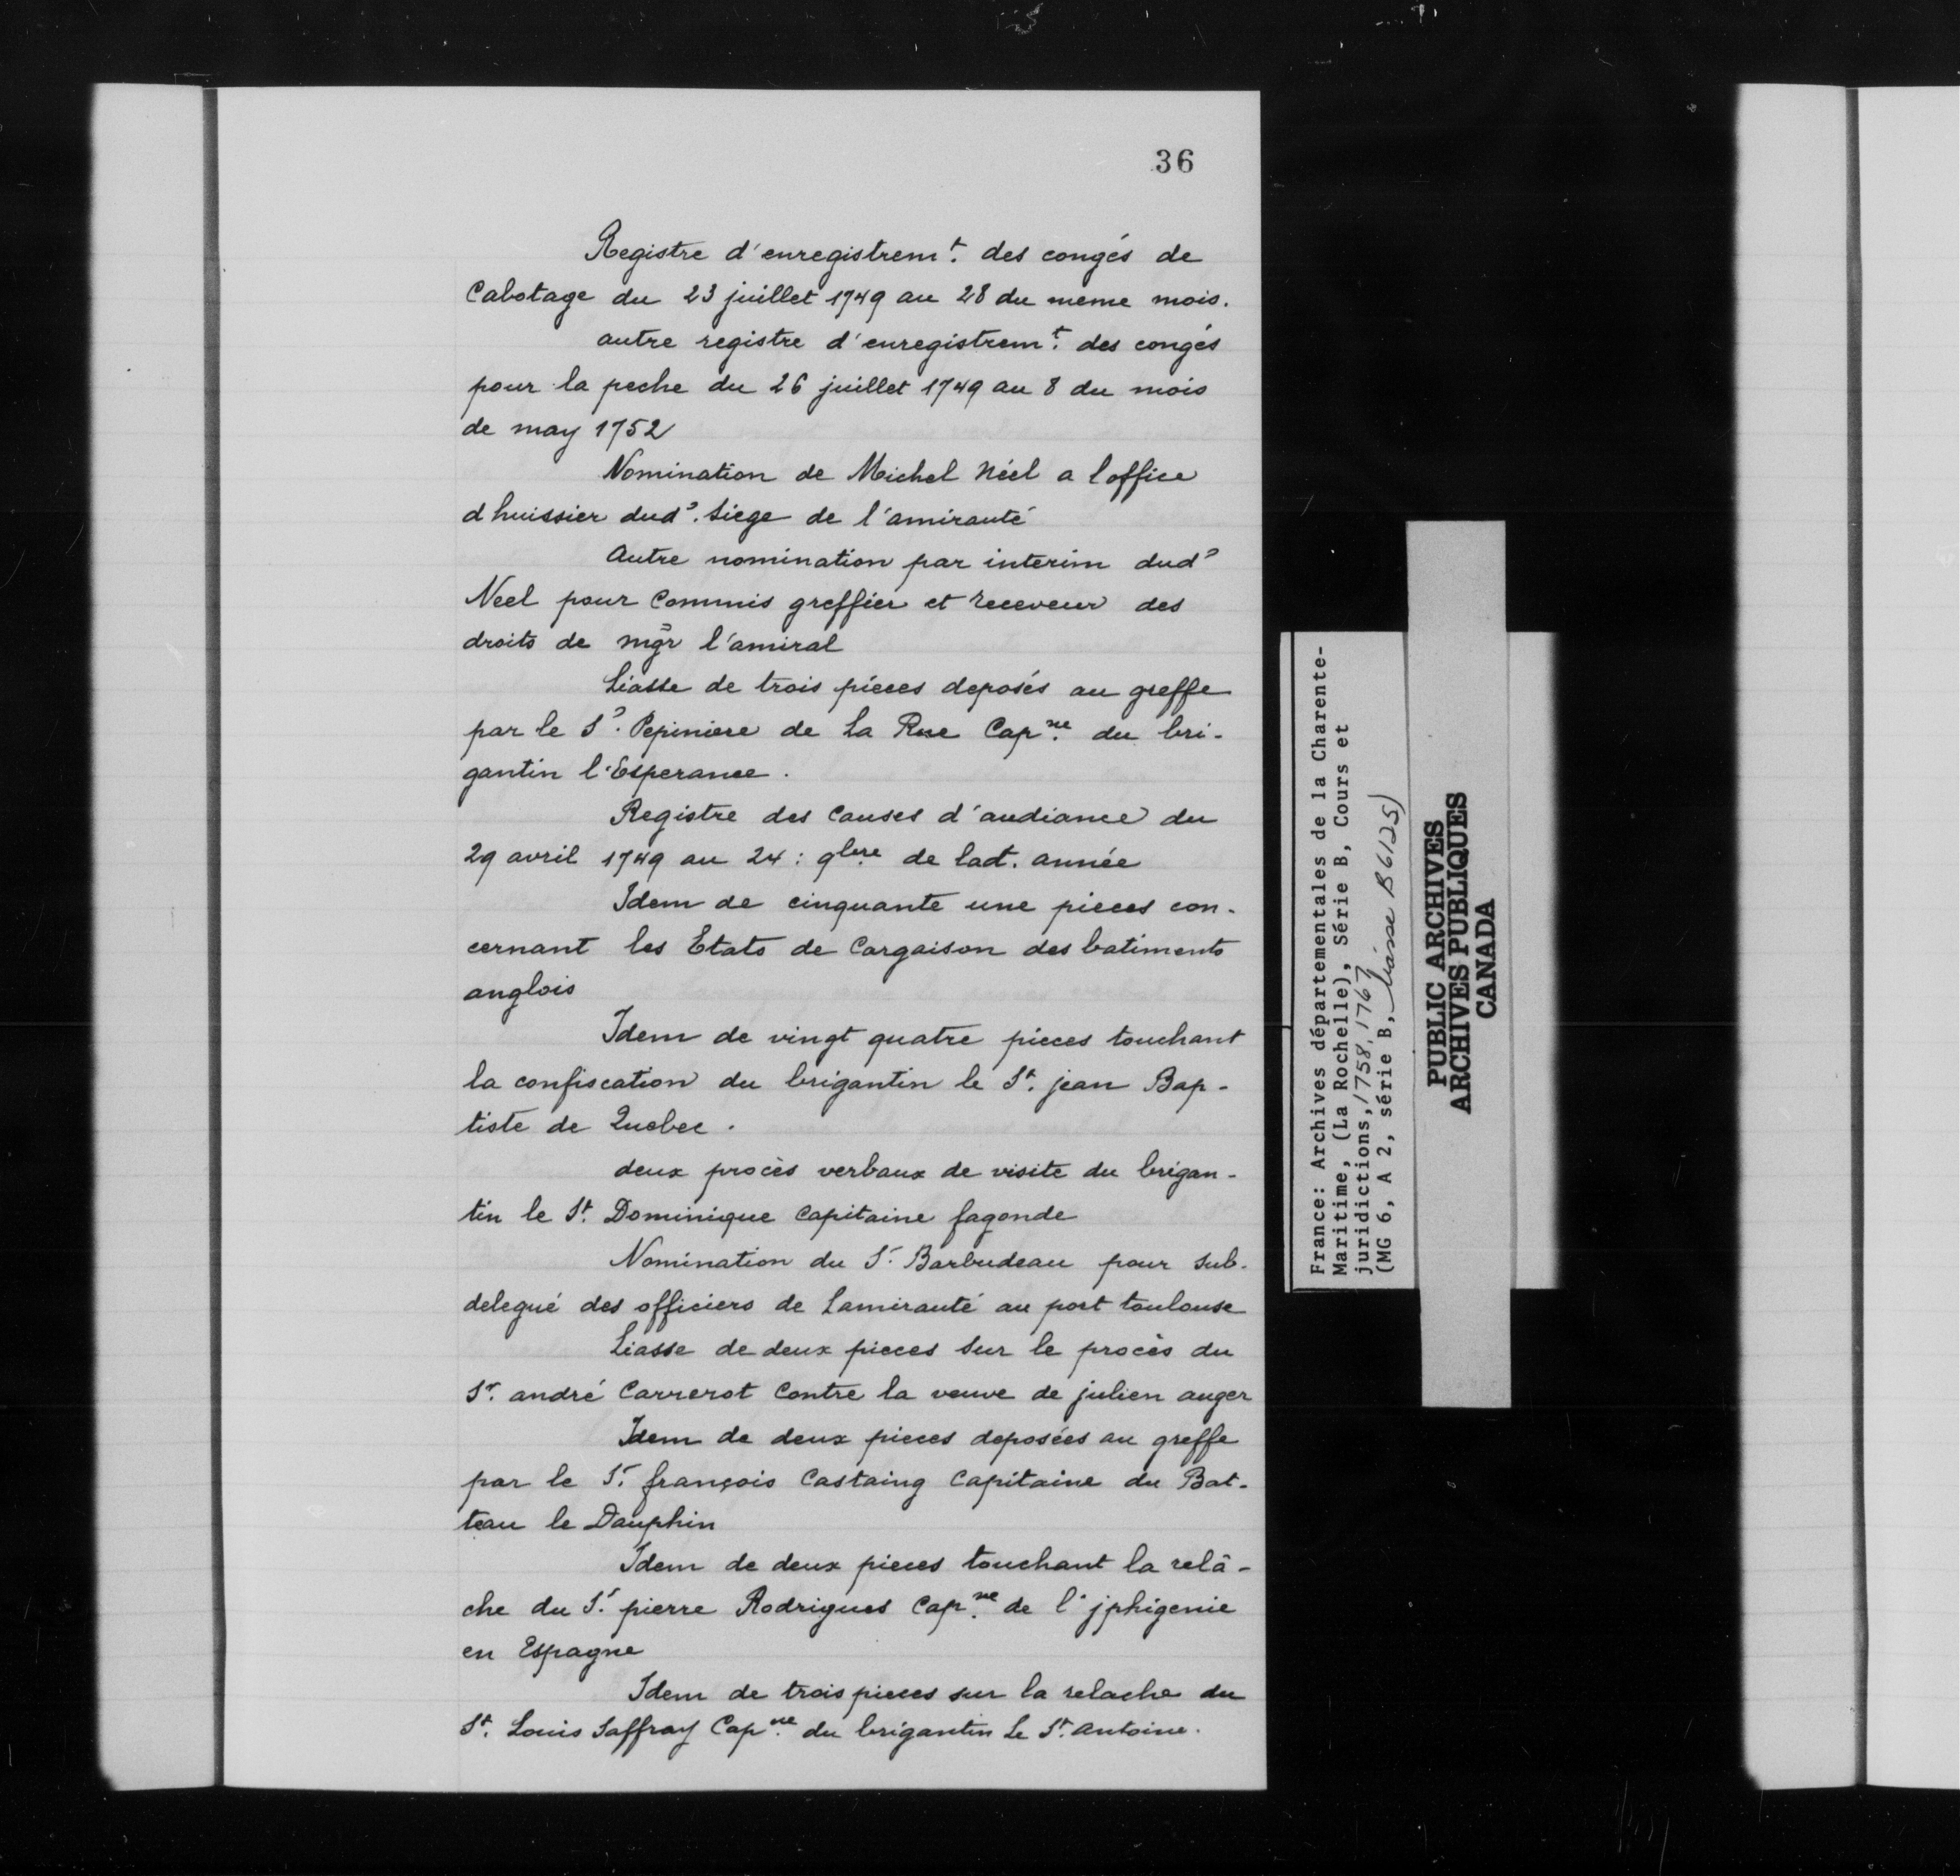 36
Registre d'enregistrem.t des congés de
Cabotage du 23 juillet 1749 au 28 du meme mois.
autre registre d'enregistrem.t des congés
pour la peche du 26 juillet 1749 au 8 du mois
de may 1752
Nomination de Michel Néel a l office
d huissier dud. Siege de l'amirauté
Autre nomination par interim dud
Neel pour Commis greffier et receveur des
droits de mgr l'amiral
Liasse de trois piéces deposés au greffe
par le S. Pepiniere de La Rue Cap.ne du bri-
gantin l'Esperance.
Registre des Causes d'audiance du
29 avril 1749 au 24: 9bre de lad. année
Idem de cinquante une pieces con-
cernant les Etats de Cargaison des batiments
anglois
Idem de vingt quatre piéces touchant
la confiscation du brigantin le St. jean Bap-
tiste de Quebec.
deux procès verbaux de visite du brigan-
tin le St. Dominique Capitaine fagonde
Nomination du Sr. Barbudeau pour Sub-
delegué des officiers de Lamirauté au port toulouse
Liasse de deux pieces Sur le procès du
Sr. andré Carrerot Contre la veuve de julien auger
Idem de deux pieces deposées au greffe
par le Sr. françois Castaing Capitaine du Bat-
teau le Dauphin
Idem de deux pieces touchant la relâ-
che du Sr. pierre Rodrigues Cap.ne de l'jphigenie
en Espagne
Idem de trois pieces sur la relache du
St. Louis Saffray Cap.ne du brigantin Le St. Antoine.
France: Archives départementales de la Charente-
Maritime, (La Rochelle), Série B, Cours et
juridictions, 1758, 1767
(MG 6, A 2, série B, liasse B6125)
PUBLIC ARCHIVES
ARCHIVES PUBLIQUES
CANADA